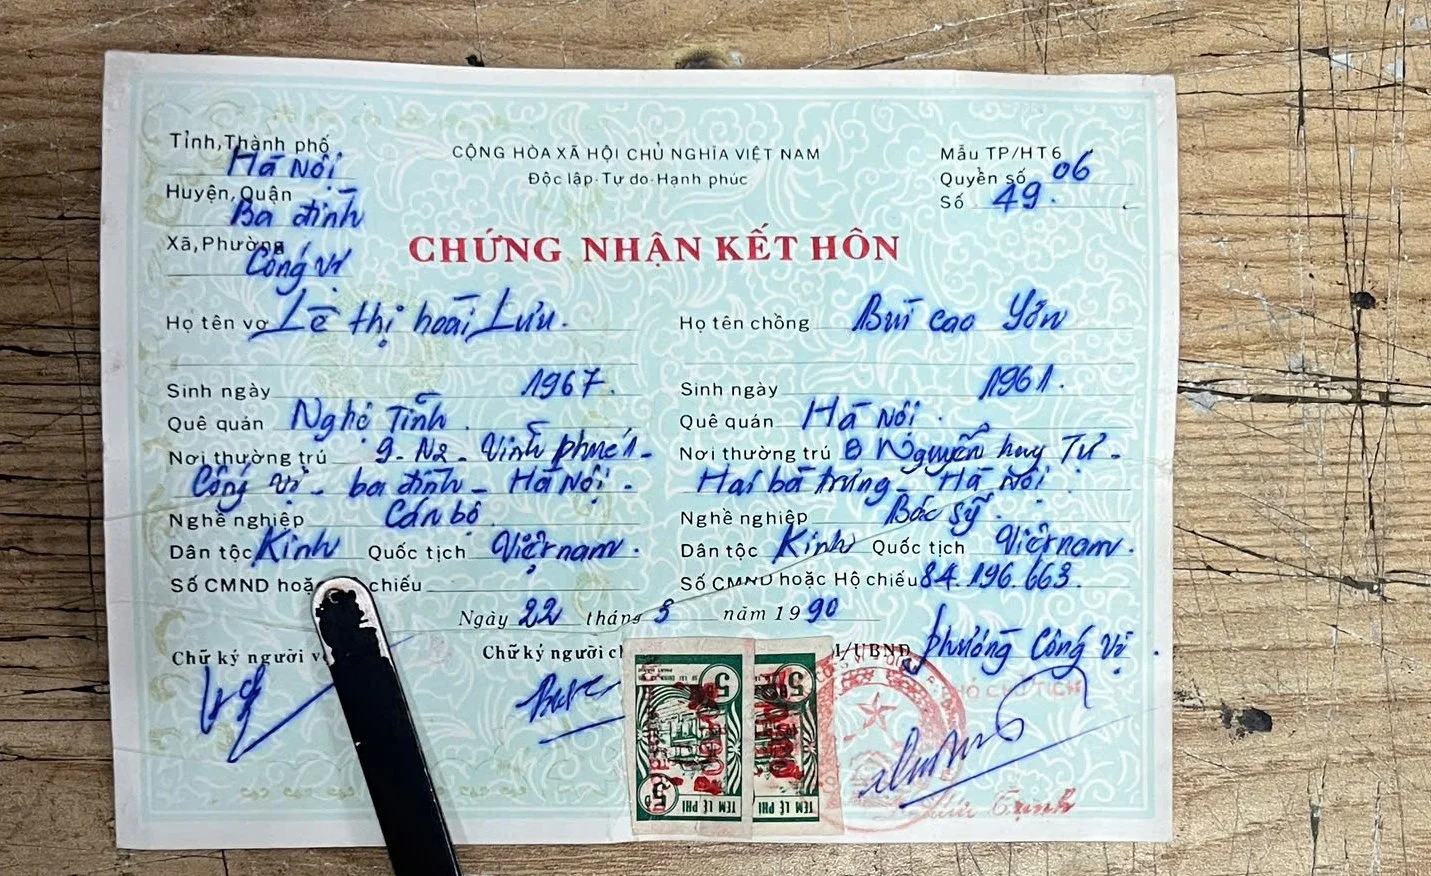 Tỉnh, Thành phố Hà Nội
CỘNG HÒA XÃ HỘI CHỦ NGHĨA VIỆT NAM
Độc lập - Tự do - Hạnh phúc
Mẫu TP/HT6
Quyển số 06
Số 49.
Huyện, Quận Ba đình
Xã, Phường Cống vị
CHỨNG NHẬN KẾT HÔN
Họ tên vợ Lê thị hoài Lưu.
Họ tên chồng Bùi cao
Sinh ngày 1967.
Sinh ngày 1961.
Quê quán Nghệ Tĩnh.
Quê quán Hà Nội.
Nơi thường trú 9-N2-Vĩnh phúc 1-
Cống vị - ba đình - Hà Nội.
Nơi thường trú 8 Nguyễn huy Tự -
Hai bà trưng - Hà Nội.
Nghề nghiệp Cán bộ
Nghề nghiệp Bác sỹ.
Dân tộc Kinh Quốc tịch Việt nam.
Dân tộc Kinh Quốc tịch Việt nam.
Số CMND chiếu
Số CMND hoặc Hộ chiếu 84.196.663.
Ngày 22 tháng 3 năm 1990
Chữ ký người
Chữ ký người
/UBND phường Cống vị.
PHÓ CHỦ TỊCH
5đ 5
TEM LỆ PHÍ TEM LỆ PHÍ